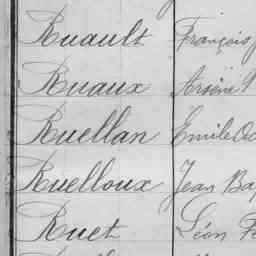 Ruault François
Ruaux Arsène
Ruellan Emile
Ruelloux Jean
Ruet Léon